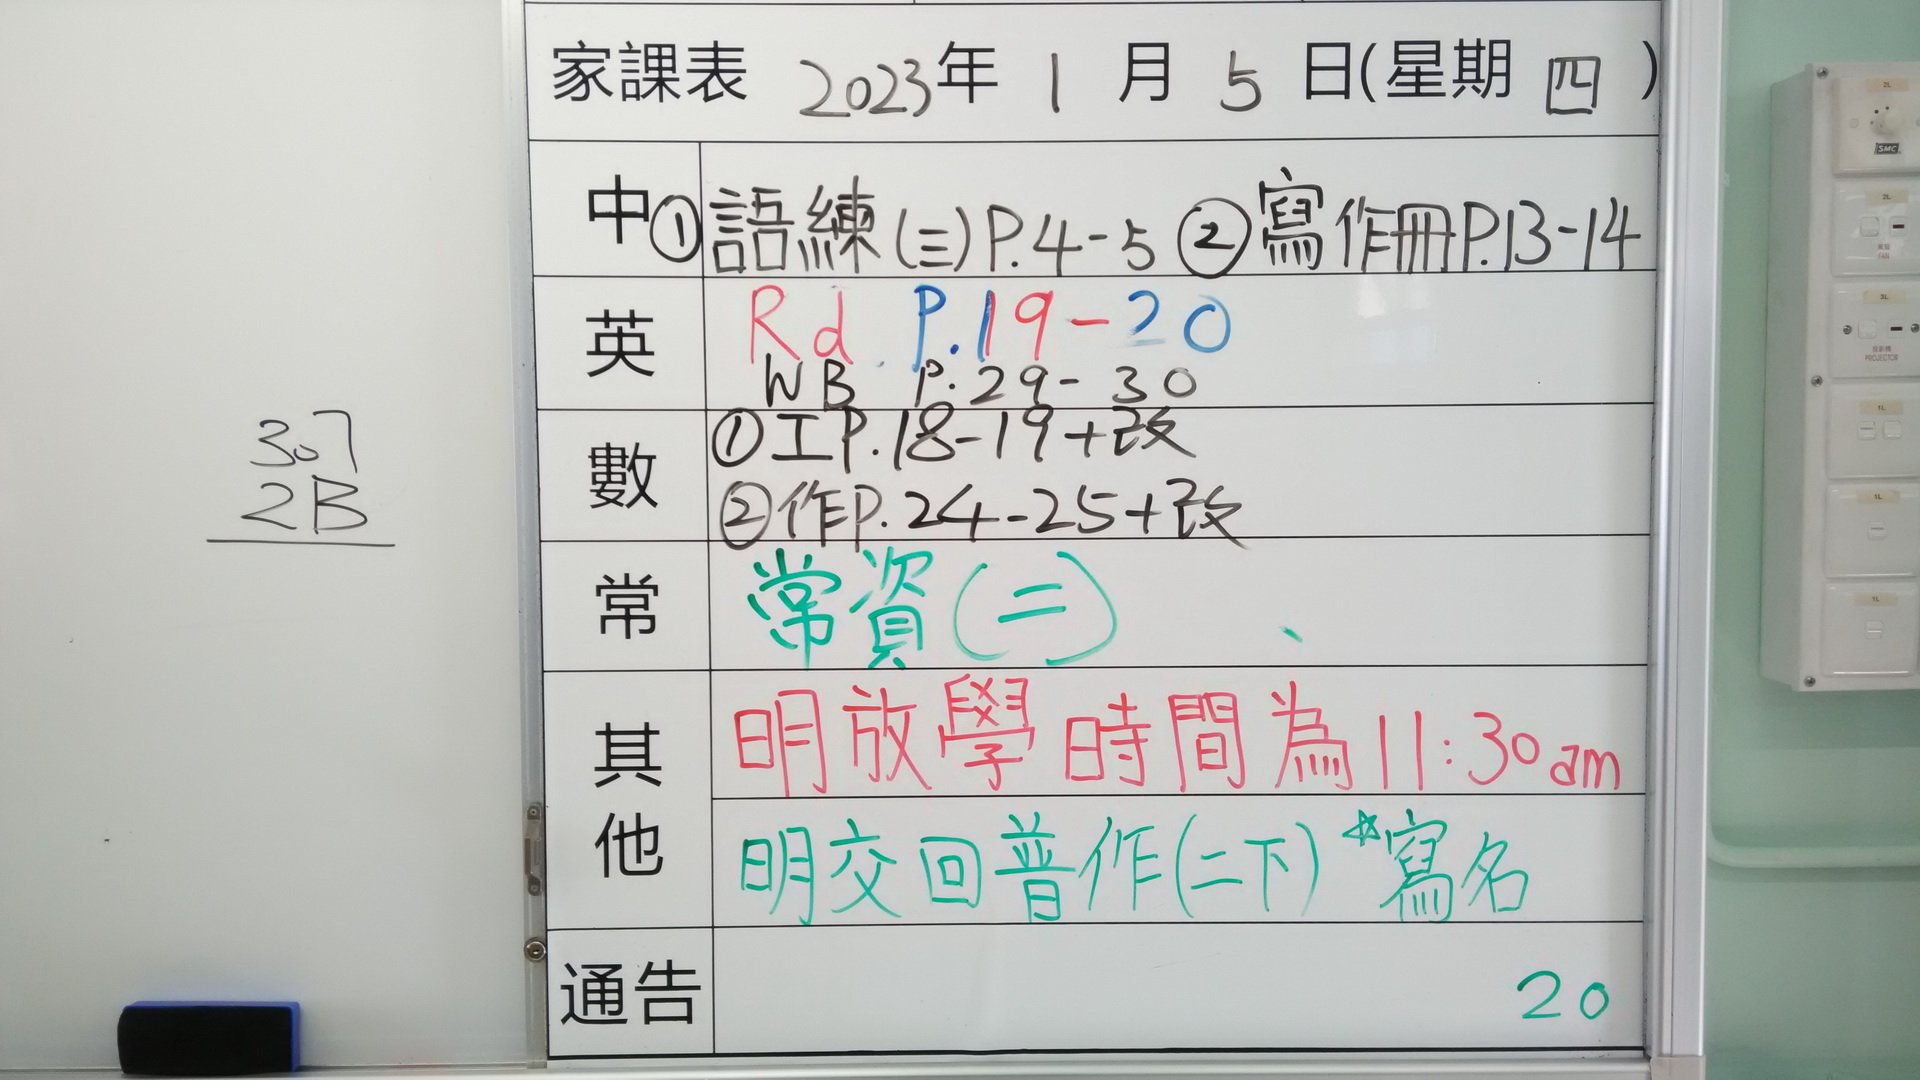 家課表 2023年 1 月 5 日(星期 四 )
中 ①語練(三)P.4-5 ②寫作冊P.13-14
英 Rd. P.19-20
WB P.29-30
數 ①工P.18-19+改
②作P.24-25+改
常 常資(二)
其他 明放學時間為11:30am
明交回普作(二下) *寫名
通告 20
307
2B
SMC
FAN
PROJECTOR
1L
1L
1L